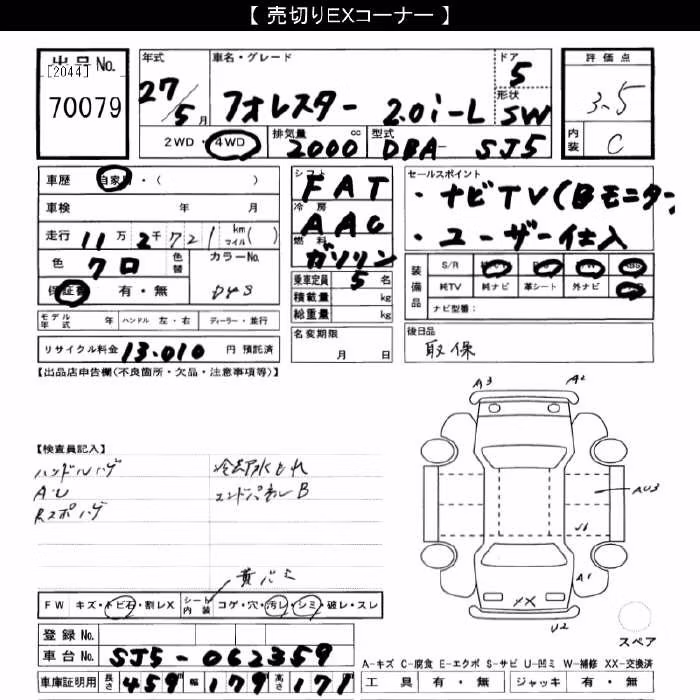 【 売切りEXコーナー 】
出品 No. [2044]
70079
年式 27/5月
車名・グレード フォレスター 2.0i-L
ドア 5
形状 SW
評価点 3.5
内装 C
2WD・4WD
排気量 cc 2000
型式 DBA- SJ5
車歴 自家用・( )
車検 年 月
走行 11万2千721 km マイル( )
色 クロ 色替
カラーNo. D4S
保証書 有・無
シフト FAT
冷房 AAC
燃料 ガソリン
乗車定員 5 名
積載量 kg
総重量 kg
セールスポイント
・ナビTV(Bモニター
・ユーザー仕入
装備品
S/R
純TV 純ナビ 革シート 外ナビ
ナビ型番:
モデル年式 年 ハンドル 左・右 ディーラー・並行
リサイクル料金 13,010 円 預託済
名変期限 月 日
後日品
取保
【出品店申告欄(不良箇所・欠品・注意事項等)】
【検査員記入】
ハンドルハゲ 冷却水もれ
A・U エンドパネルB
Rスポハゲ
黄バミ
FW キズ・トビ石・割レX シート内装 コゲ・穴・汚レ・シミ・破レ・スレ
登録 No.
車台 No. SJ5-062359
車庫証明用 長さ 459 幅 179 高さ 171
A3 A2
AU3
U1
A1
XX
U2
スペア
A-キズ C-腐食 E-エクボ S-サビ U-凹ミ W-補修 XX-交換済
工具 有・無 ジャッキ 有・無